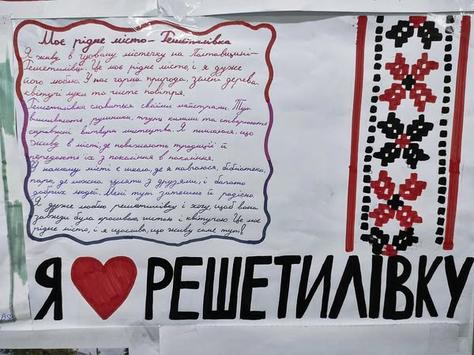 Моє рідне місто - Решетилівка
Я живу в чудовому містечку на Полтавщині -
Решетилівці. Це моє рідне місто, і я дуже
його люблю. У нас гарна природа, зелені дерева,
квітучі луки та чисте повітря.
Решетилівка славиться своїми майстрами. Тут
вишивають рушники, тчуть килими та створюють
справжні витвори мистецтва. Я пишаюся, що
живу в місті, де поважають традиції й
передають їх з покоління в покоління.
У нашому місті є школа, де я навчаюся, бібліотека,
парк, де можна гуляти з друзями, і багато
добрих людей. Мені тут затишно й радісно.
Я дуже люблю Решетилівку і хочу, щоб вона
завжди була красивою, чистою і квітучою. Це моє
рідне місто, і я щаслива, що живу саме тут!
Я РЕШЕТИЛІВКУ